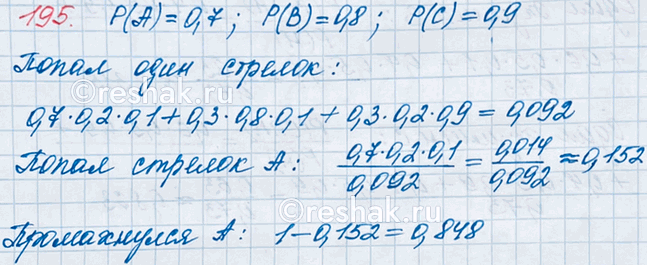 195. P(A)=0,7; P(B)=0,8; P(C)=0,9
Попал один стрелок:
0,7·0,2·0,1+0,3·0,8·0,1+0,3·0,2·0,9=0,092
Попал стрелок A: \frac{0,7·0,2·0,1}{0,092}=\frac{0,014}{0,092}≈0,152
Промахнулся A: 1-0,152=0,848
reshak.ru
reshak.ru